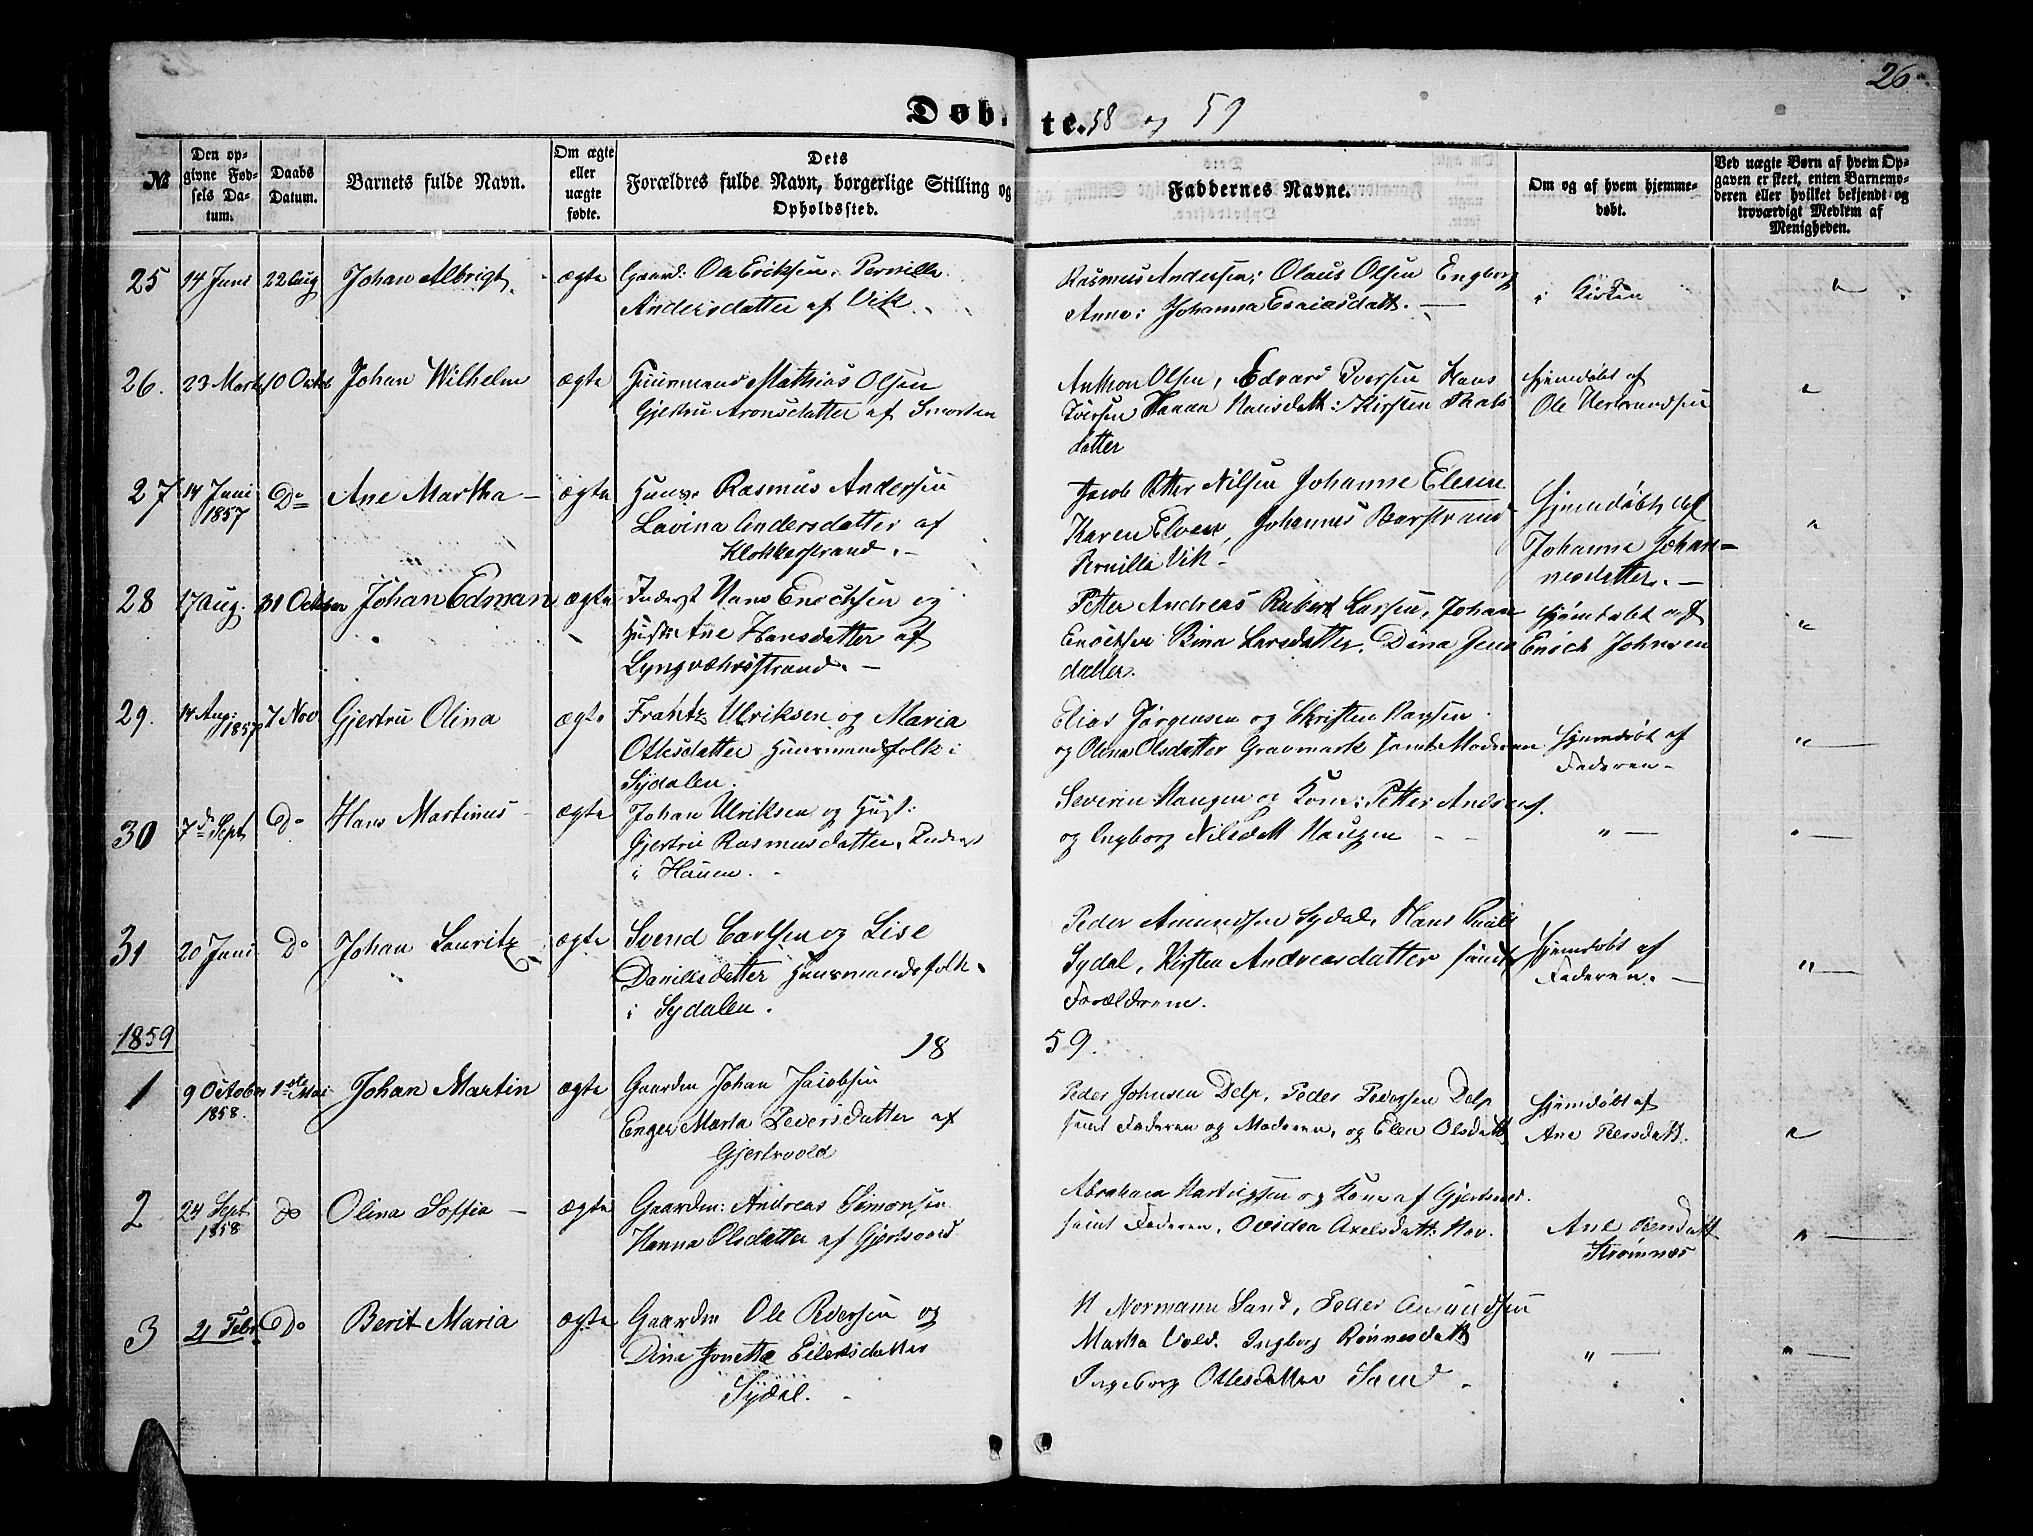 26.
Døbte. 58 og 59
№
Den op-
givne Fød-
sels Da-
tum.
Daabs
Datum.
Barnets fulde Navn.
Om ægte
eller
uægte
fødte.
Dets
Forældres fulde Navn, borgerlige Stilling og
Opholdssted.
Faddernes Navne.
Om og af hvem hjemme-
døbt.
Ved uægte Børn af hvem Op-
gaven er skeet, enten Barnemo-
deren eller hvilket bekjendt og
troværdigt Medlem af
Menigheden.
25 14 Juni 22 Aug Johan Albrigt. ægte Gaard: Ole Eriksen. Pernilla
Andersdatter af Vik.
Rasmus Andersen; Olaus Olsen Engborg
Anne; Johanna Esaiasdatt. —
i Kirken "
26. 23 Marts 10 Octb Johan Wilhelm ægte Huusmand Mathias Olsen
Gjertru Aronsdatter af Smorten
Anthon Olsen, Edvard Iversen Hans
Iversen Hanna Hansdatt: Kirsten
datter
Hjemdøbt af
Ole "
27 14 Juni
1857 Do Ane Martha — ægte Huus. Rasmus Andersen
Lavina Andersdatter af
Klokkerstrand. —
Jacob Petter Nilsen Johanne Elesen
Karen Johannes Barstrand
Pernilla Vik —
Hjemdøbt, af
Johanna Johan=
nesdatter. — "
28 17 Aug. 31 October Johan Edman ægte Inderst Hans Enochsen og
Hust: Ane Hansdatter af
Lyngværhsstrand. —
Petter Andreas Rubert Larsen, Johan
Enochsen Bina Larsdatter, Dina Jens
datter.
Hjemdøbt af
Enoch Johnsen "
29. 14 Aug:
1857 7 Nov Gjertru Olina ægte Frantz Ulriksen og Maria
Ottesdatter Huusmandsfolk i
Sydalen.
Elias Jørgensen og Christen Hansen
og Olina Olsdatter Gravmark samt Moderen
Hjemdøbt af
Faderen — " —
30 7de Sept. Do Hans Martinus — ægte Johan Ulriksen og Hust:
Gjertrie Rasmusdatter. Inderst
i Hauen.
Severin Haugen og Kone: Petter Andreas
og Ingborg Nilsdatt Haugen — —
" — " —
31 20 Juni Do Johan Lauritz ægte Svend Carlsen og Lise
Danielsdatter Huusmandsfolk
i Sydalen.
Peder Amundsen Sydal, Hans
Sydal, Kirsten Andreasdatter samt
Forældrene.
Hjemdøbt af
Faderen. — " —
1859 18 59.
1 9 October
1858. 1ste Mai Johan Martin ægte Gaarden Johan Jacobsen
Enger Marta Peversdatter af
Gjertrvold
Peder Johnsen Delp, Peder Pedersen Delp
samt Faderen og Moderen, og Elen Olsdatt
Hjemdøbt af
Ane Persdatt. "
2 24 Sept.
1858 do Olina Soffia — ægte Gaarden: Andreas Simonsen
Hanna Olsdatter af Gjersvold
Abraham Hartvigsen og Kone af Gjertsvol.
samt Faderen, Ovidea Axelsdatt: Hov.
Ane
Strømnes " —
3 21 Febr. Do Berit Maria ægte Gaarden Ole Iversen og
Dina Jonetta Eilertsdatter
Sydal. —
N Normann Sand, Peder Amundsen
Martha Vold. Ingborg Rønnesdatt
Ingeborg Ottesdatter Sand —
" — " —